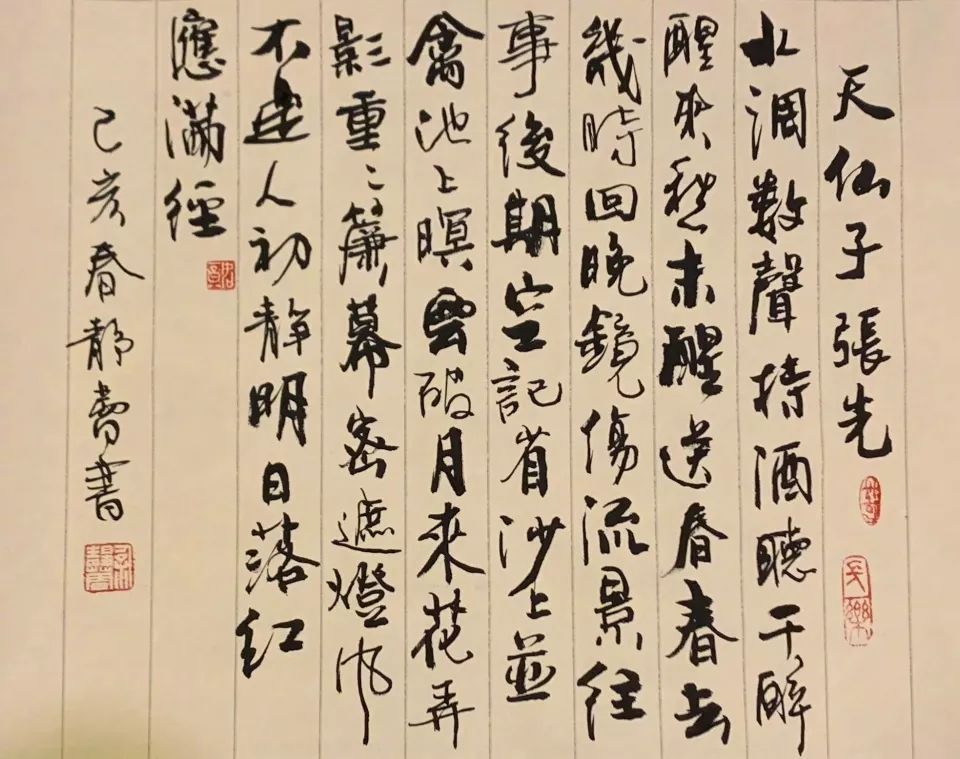 天仙子張先
水調數聲持酒聽午醉
醒來愁未醒送春春去
幾時回晚鏡傷流景往
事後期空記省沙上並
禽池上暝雲破月來花弄
影重〻簾幕密遮燈風
不定人初静明日落紅
應滿徑
己亥春靜書